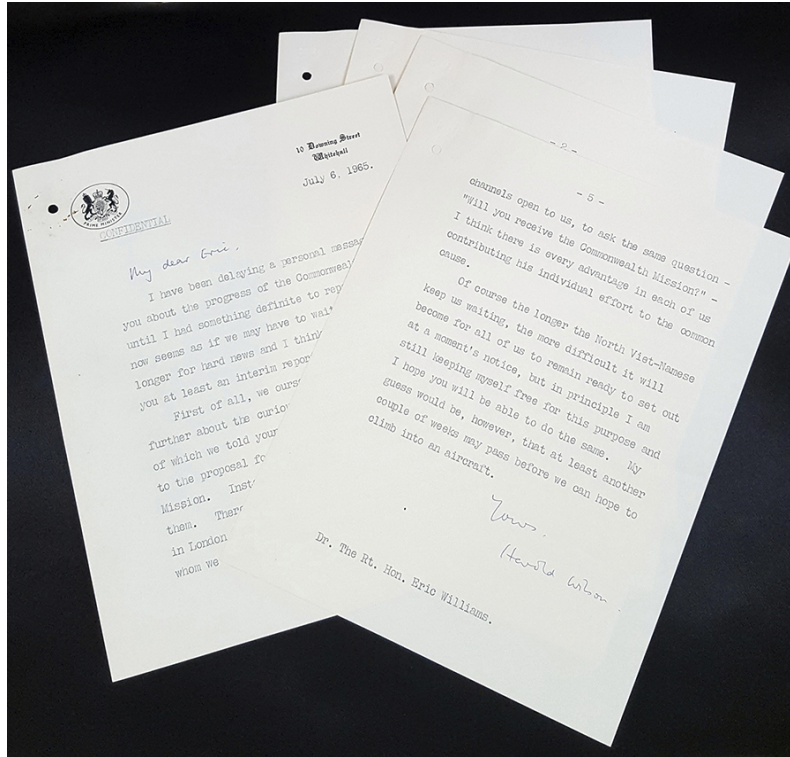 10 Downing Street
Whitehall
July 6, 1965.
PRIME MINISTER
CONFIDENTIAL
My dear Eric,
I have been delaying a personal messag
you about the progress of the Commonweal
until I had something definite to rep
now seems as if we may have to wai
longer for hard news and I think
you at least an interim repor
First of all, we ourse
further about the curiou
of which we told your
to the proposal fo
Mission. Inst
them. There
in London
whom we
- 2 -
- 5 -
channels open to us, to ask the same question -
"Will you receive the Commonwealth Mission?" -
I think there is every advantage in each of us
contributing his individual effort to the common
cause.
Of course the longer the North Viet-Namese
keep us waiting, the more difficult it will
become for all of us to remain ready to set out
at a moment's notice, but in principle I am
still keeping myself free for this purpose and
I hope you will be able to do the same. My
guess would be, however, that at least another
couple of weeks may pass before we can hope to
climb into an aircraft.
Yours.
Harold Wilson.
Dr. The Rt. Hon. Eric Williams.